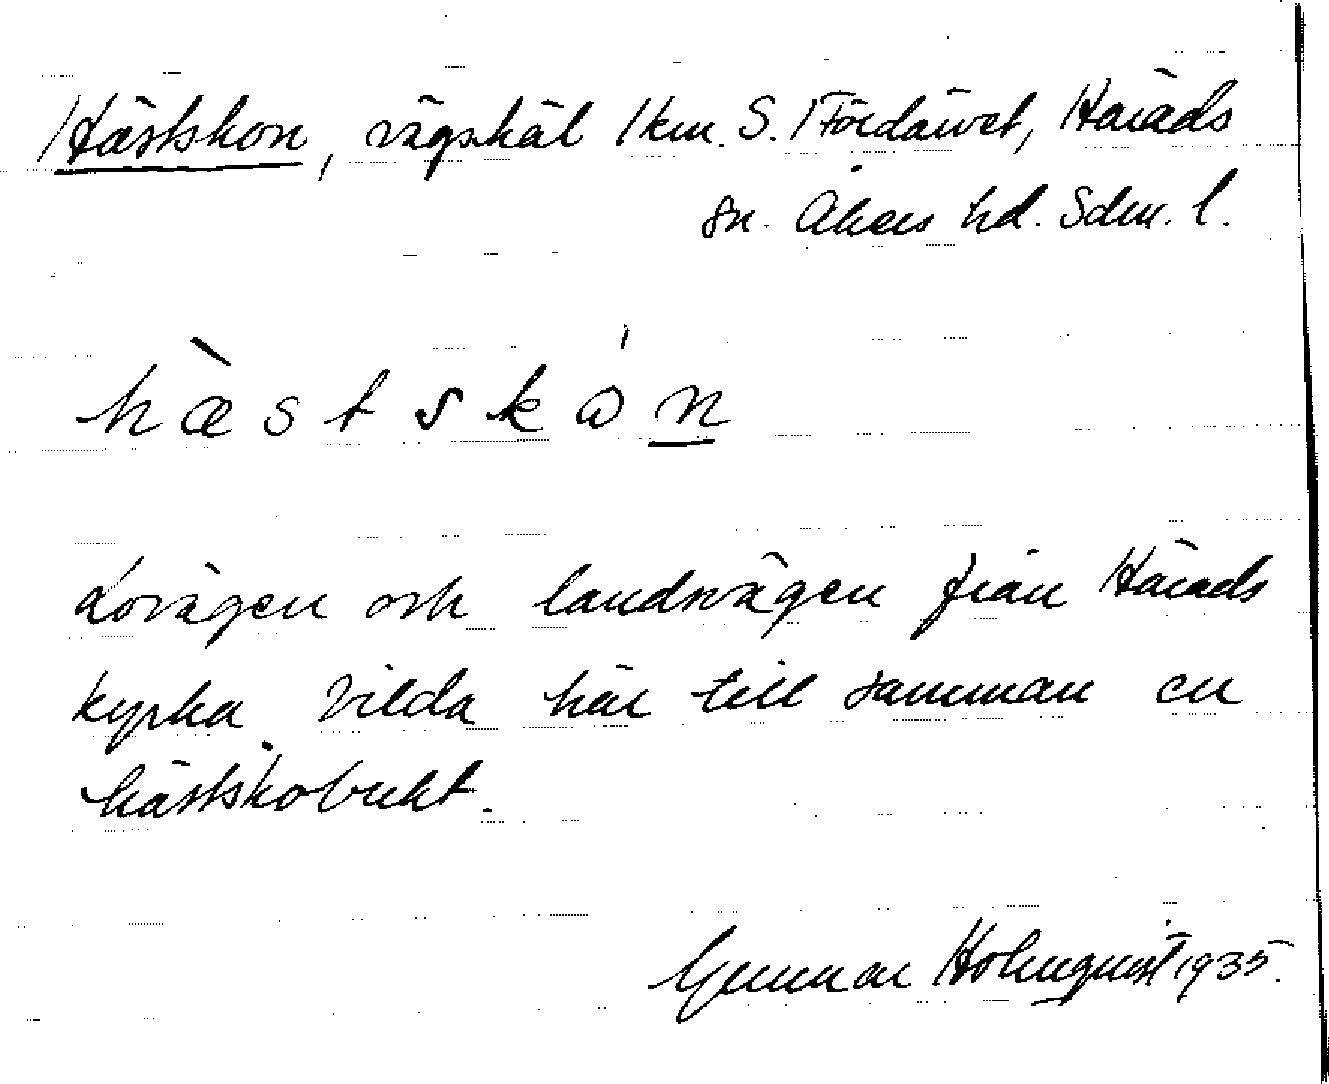 Hästskon, vägskäl 1 km. S. Fördärvet, Härads
sn. Åkers hd. Sdm. l.
hæstskon
Kovägen och landsvägen från Härads
kyrka bilda här till samman en
hästskobukt.
Gunnar Holmquist 1935.